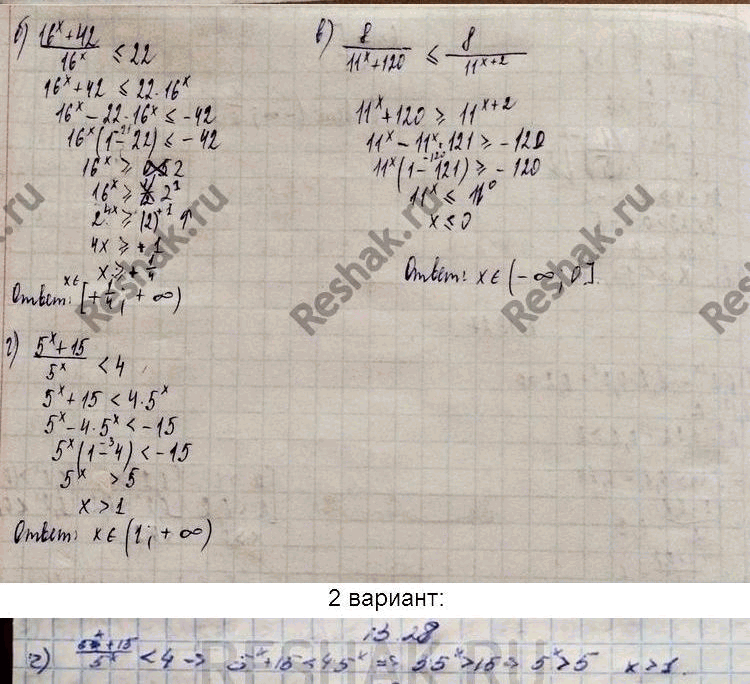 б) (16^x+42)/16^x ≤ 22
16^x+42 ≤ 22·16^x
16^x - 22·16^x ≤ -42
16^x(1-22) ≤ -42
-21
16^x ≥ 2
16^x ≥ 2^1
2^4x ≥ (2)^+1 ↑
4x ≥ +1
x ≥ +1/4
Ответ: x∈[+1/4; +∞)
в) 8/(11^x+120) ≤ 8/11^(x+2)
11^x+120 ≥ 11^(x+2)
11^x - 11^x·121 ≥ -120
11^x(1-121) ≥ -120
-120
11^x ≤ 11^0
x ≤ 0
Ответ: x∈(-∞; 0].
г) (5^x+15)/5^x < 4
5^x+15 < 4·5^x
5^x - 4·5^x < -15
5^x(1-4) < -15
-3
5^x > 5
x > 1
Ответ: x∈(1; +∞)
Reshak.ru
Reshak.ru
Reshak.ru
2 вариант:
13.28
г) (5^x+15)/5^x < 4 => 5^x+15 < 4 5^x => 35^x > 15 => 5^x > 5 x > 1.
RESHAK.RU